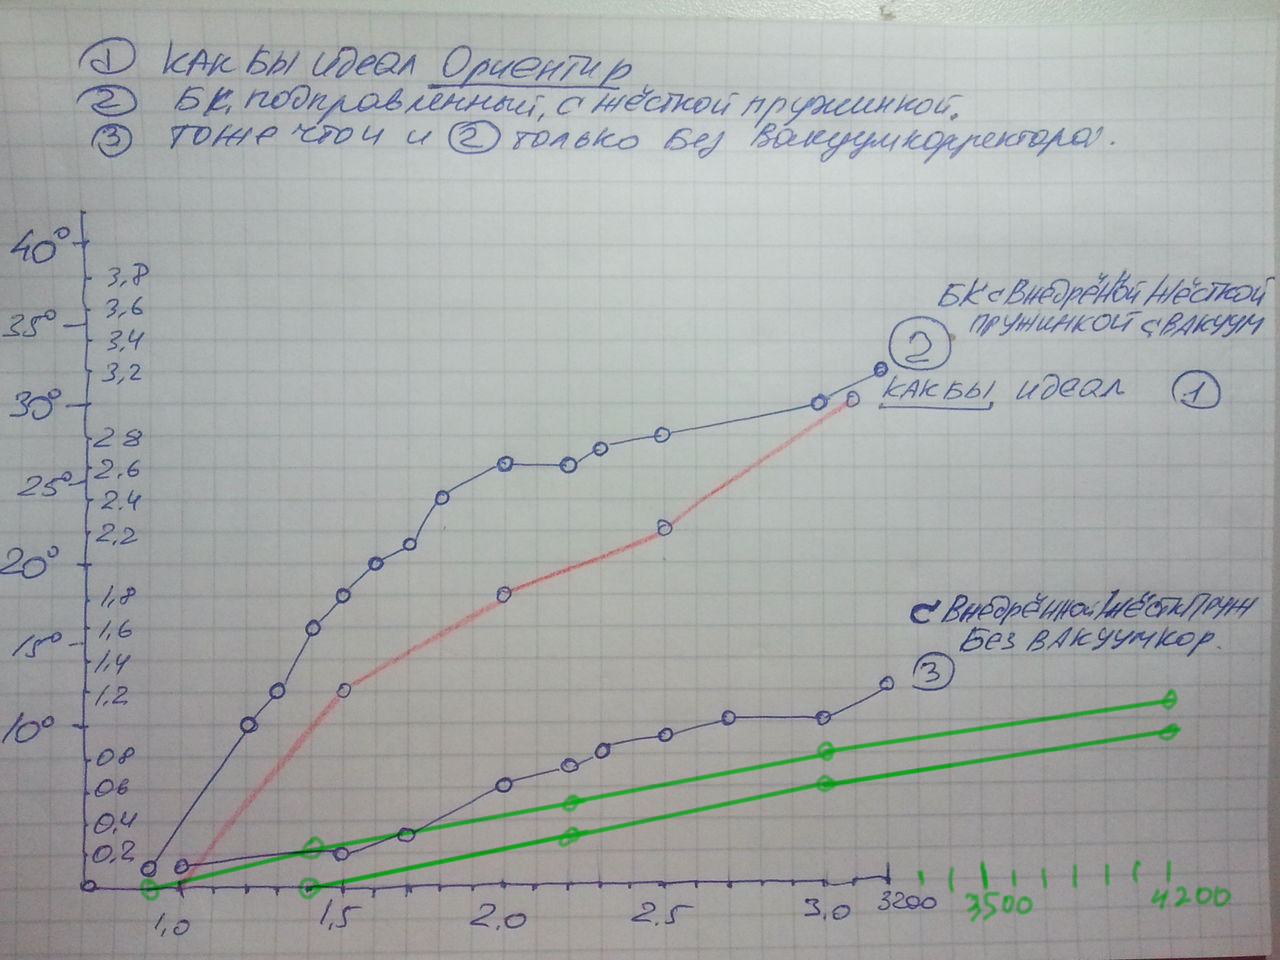 ① КАК БЫ идеал Ориентир
② БК, подправленный, с жёсткой пружинкой.
③ тоже что и и ② только без вакуумкорректора.
40°
3,8
3,6
35°
3,4
3,2
30°
2 8
2,6
25°
2.4
2,2
20°
1,8
1,6
15°
1,4
1,2
10°
0 8
0 6
0,4
0,2
БК с Внедрёной жёсткой
пружинкой с ВАКУУМ
②
КАК БЫ идеал ①
с Внедрённой жёстк Пруж
Без ВАКУУМКОР.
③
1,0 1,5 2.0 2.5 3.0 3200 3500 4200